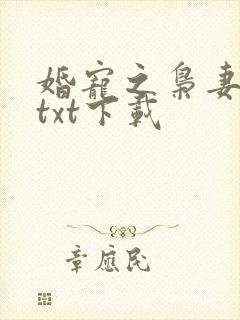 婚寵之梟妻
txt下載
章應民